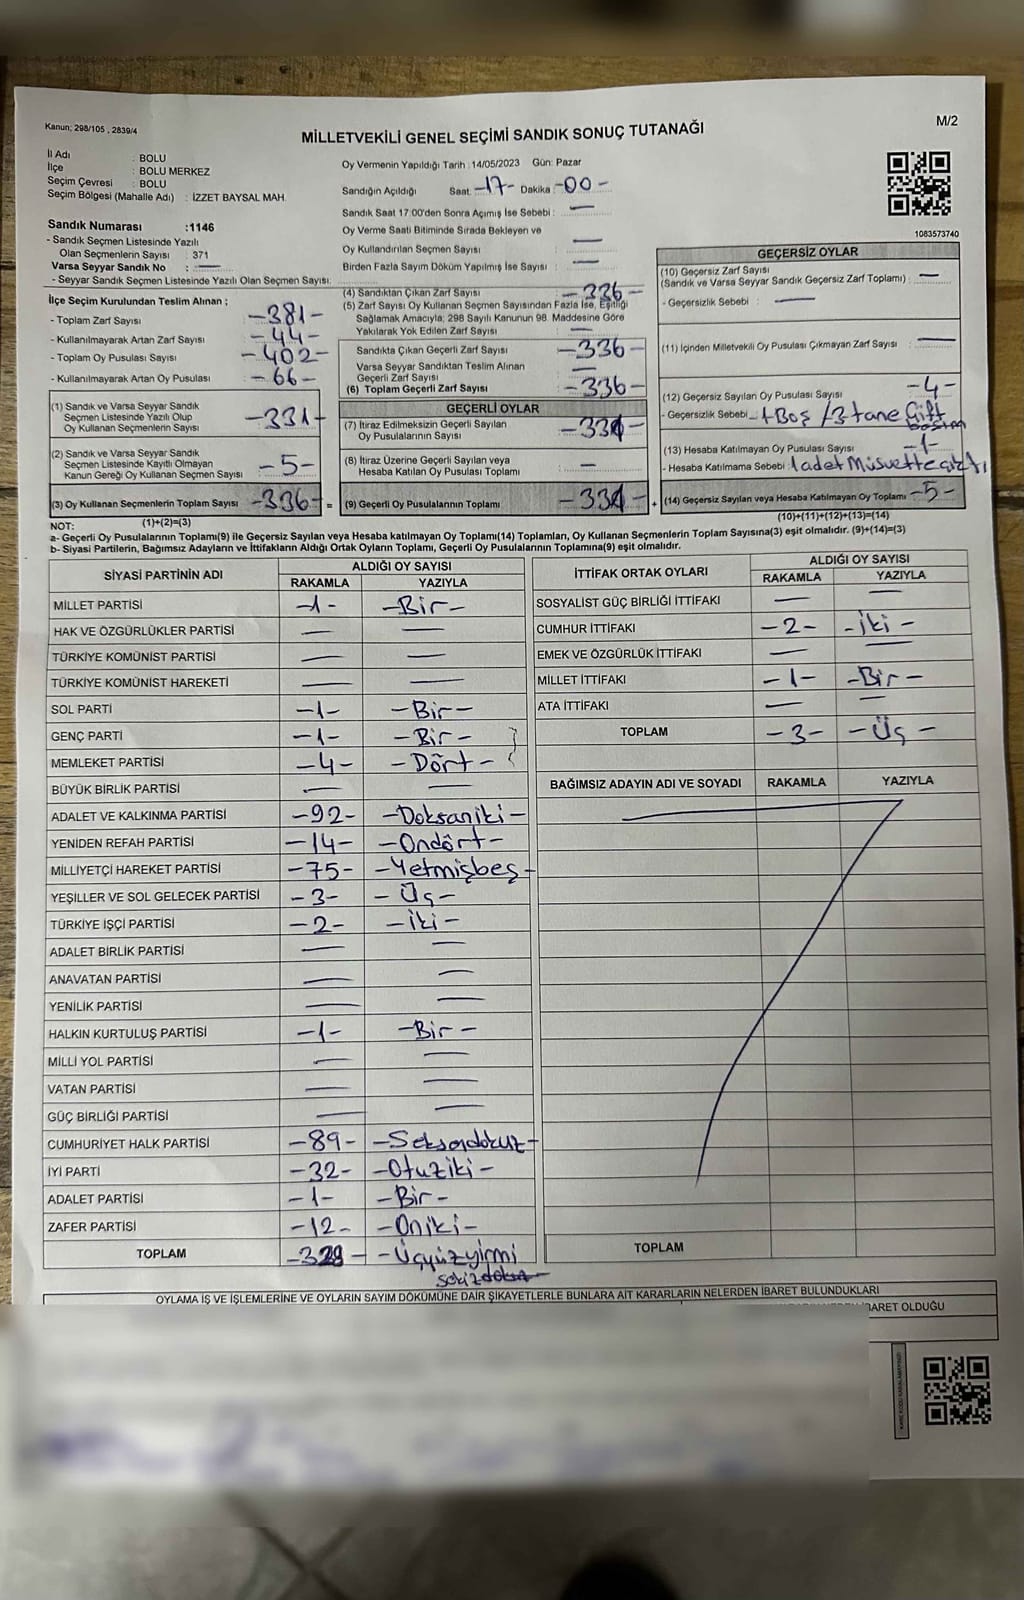 Kanun; 298/105 , 2839/4
M/2
MİLLETVEKİLİ GENEL SEÇİMİ SANDIK SONUÇ TUTANAĞI
İl Adı : BOLU
İlçe : BOLU MERKEZ
Seçim Çevresi : BOLU
Seçim Bölgesi (Mahalle Adı) : İZZET BAYSAL MAH.
Sandık Numarası :1146
- Sandık Seçmen Listesinde Yazılı
Olan Seçmenlerin Sayısı : 371
Varsa Seyyar Sandık No : —
- Seyyar Sandık Seçmen Listesinde Yazılı Olan Seçmen Sayısı:
Oy Vermenin Yapıldığı Tarih : 14/05/2023 Gün: Pazar
Sandığın Açıldığı Saat: -17- Dakika: -00-
Sandık Saat 17:00'den Sonra Açılmış İse Sebebi : —
Oy Verme Saati Bitiminde Sırada Bekleyen ve
Oy Kullandırılan Seçmen Sayısı —
Birden Fazla Sayım Döküm Yapılmış İse Sayısı —
1083573740
İlçe Seçim Kurulundan Teslim Alınan ;
- Toplam Zarf Sayısı -381-
- Kullanılmayarak Artan Zarf Sayısı -44-
- Toplam Oy Pusulası Sayısı -402-
- Kullanılmayarak Artan Oy Pusulası -66-
(1) Sandık ve Varsa Seyyar Sandık
Seçmen Listesinde Yazılı Olup
Oy Kullanan Seçmenlerin Sayısı -331-
(2) Sandık ve Varsa Seyyar Sandık
Seçmen Listesinde Kayıtlı Olmayan
Kanun Gereği Oy Kullanan Seçmen Sayısı -5-
(3) Oy Kullanan Seçmenlerin Toplam Sayısı -336- =
(4) Sandıktan Çıkan Zarf Sayısı -336-
(5) Zarf Sayısı Oy Kullanan Seçmen Sayısından Fazla İse, Eşitliği
Sağlamak Amacıyla; 298 Sayılı Kanunun 98. Maddesine Göre
Yakılarak Yok Edilen Zarf Sayısı —
Sandıkta Çıkan Geçerli Zarf Sayısı -336-
Varsa Seyyar Sandıktan Teslim Alınan
Geçerli Zarf Sayısı —
(6) Toplam Geçerli Zarf Sayısı -336-
GEÇERLİ OYLAR
(7) İtiraz Edilmeksizin Geçerli Sayılan
Oy Pusulalarının Sayısı -331-
(8) İtiraz Üzerine Geçerli Sayılan veya
Hesaba Katılan Oy Pusulası Toplamı —
(9) Geçerli Oy Pusulalarının Toplamı -331- +
GEÇERSİZ OYLAR
(10) Geçersiz Zarf Sayısı
(Sandık ve Varsa Seyyar Sandık Geçersiz Zarf Toplamı) : —
- Geçersizlik Sebebi : —
(11) İçinden Milletvekili Oy Pusulası Çıkmayan Zarf Sayısı —
(12) Geçersiz Sayılan Oy Pusulası Sayısı -4-
- Geçersizlik Sebebi 1 Boş / 3 tane Çift
basım
(13) Hesaba Katılmayan Oy Pusulası Sayısı -1-
- Hesaba Katılmama Sebebi 1 adet Müsvette çıktı
(14) Geçersiz Sayılan veya Hesaba Katılmayan Oy Toplamı -5-
NOT: (1)+(2)=(3)
(10)+(11)+(12)+(13)=(14)
a- Geçerli Oy Pusulalarının Toplamı(9) ile Geçersiz Sayılan veya Hesaba katılmayan Oy Toplamı(14) Toplamları, Oy Kullanan Seçmenlerin Toplam Sayısına(3) eşit olmalıdır. (9)+(14)=(3)
b- Siyasi Partilerin, Bağımsız Adayların ve İttifakların Aldığı Ortak Oyların Toplamı, Geçerli Oy Pusulalarının Toplamına(9) eşit olmalıdır.
SİYASİ PARTİNİN ADI ALDIĞI OY SAYISI
RAKAMLA YAZIYLA
MİLLET PARTİSİ -1- -Bir-
HAK VE ÖZGÜRLÜKLER PARTİSİ — —
TÜRKİYE KOMÜNİST PARTİSİ — —
TÜRKİYE KOMÜNİST HAREKETİ — —
SOL PARTİ -1- -Bir-
GENÇ PARTİ -1- -Bir-
MEMLEKET PARTİSİ -4- -Dört-
BÜYÜK BİRLİK PARTİSİ — —
ADALET VE KALKINMA PARTİSİ -92- -Doksaniki-
YENİDEN REFAH PARTİSİ -14- -Ondört-
MİLLİYETÇİ HAREKET PARTİSİ -75- -Yetmişbeş-
YEŞİLLER VE SOL GELECEK PARTİSİ -3- -Üç-
TÜRKİYE İŞÇİ PARTİSİ -2- -İki-
ADALET BİRLİK PARTİSİ — —
ANAVATAN PARTİSİ — —
YENİLİK PARTİSİ — —
HALKIN KURTULUŞ PARTİSİ -1- -Bir-
MİLLİ YOL PARTİSİ — —
VATAN PARTİSİ — —
GÜÇ BİRLİĞİ PARTİSİ — —
CUMHURİYET HALK PARTİSİ -89- -Seksendokuz-
İYİ PARTİ -32- -Otuziki-
ADALET PARTİSİ -1- -Bir-
ZAFER PARTİSİ -12- -Oniki-
TOPLAM -328- -Üçyüzyirmi
sekiz
İTTİFAK ORTAK OYLARI ALDIĞI OY SAYISI
RAKAMLA YAZIYLA
SOSYALİST GÜÇ BİRLİĞİ İTTİFAKI — —
CUMHUR İTTİFAKI -2- -İki-
EMEK VE ÖZGÜRLÜK İTTİFAKI — —
MİLLET İTTİFAKI -1- -Bir-
ATA İTTİFAKI — —
TOPLAM -3- -Üç-
BAĞIMSIZ ADAYIN ADI VE SOYADI RAKAMLA YAZIYLA
TOPLAM
OYLAMA İŞ VE İŞLEMLERİNE VE OYLARIN SAYIM DÖKÜMÜNE DAİR ŞİKAYETLERLE BUNLARA AİT KARARLARIN NELERDEN İBARET BULUNDUKLARI
BARET OLDUĞU